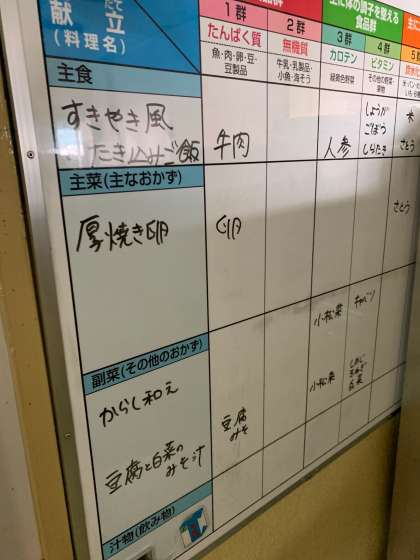 献立
たて
(料理名)
1群
たんぱく質
魚・肉・卵・豆・
豆製品
2群
無機質
牛乳・乳製品・
小魚・海そう
主に体の調子を整える
食品群
3群
カロテン
緑黄色野菜
4群
ビタミン
その他の野菜・
果物
主食
すきやき風
たき込みご飯
牛肉
人参
しょうが
ごぼう
しらたき
米
さとう
主菜(主なおかず)
厚焼き卵
卵
さとう
副菜(その他のおかず)
からし和え
小松菜
キャベツ
豆腐と白菜の
みそ汁
豆腐
みそ
小松菜
しめじ
玉ねぎ
白菜
汁物(飲み物)